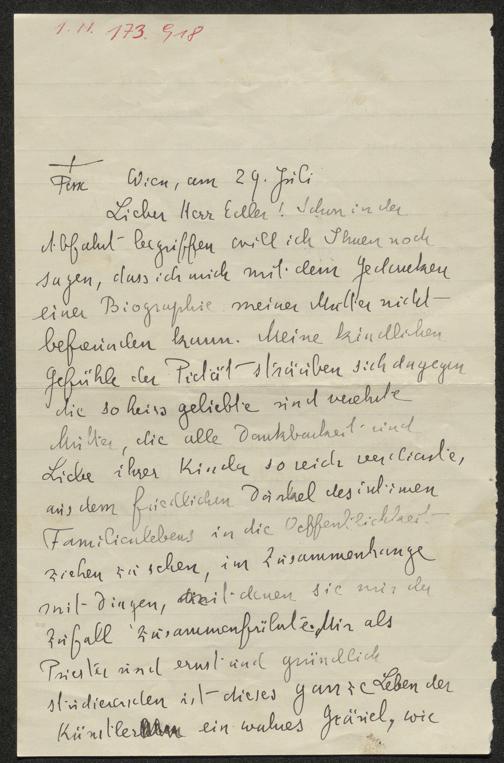 1. N. 173.918
Pax Wien, am 29. Juli
Lieber Herr Edler! Schon in der
Abfahrt begriffen will ich Ihnen noch
sagen, dass ich mich mit dem Gedanken
einer Biographie meiner Mutter nicht
befreunden kann. Meine kindlichen
Gefühle der Pietät sträuben sich dagegen
die so heiss geliebte und verehrte
Mutter, die alle Dankbarkeit und
Liebe ihrer Kinder so reich verdiente,
aus dem friedlichen Dunkel des intimen
Familienlebens in die Oeffentlichkeit
ziehen zu sehen, im Zusammenhange
mit Dingen, mit denen sie nur der
Zufall zusammenführte. Mir als
Priester und ernst und gründlich
studierenden ist dieses ganze Leben der
Künstler ein wahres Gräuel, wie